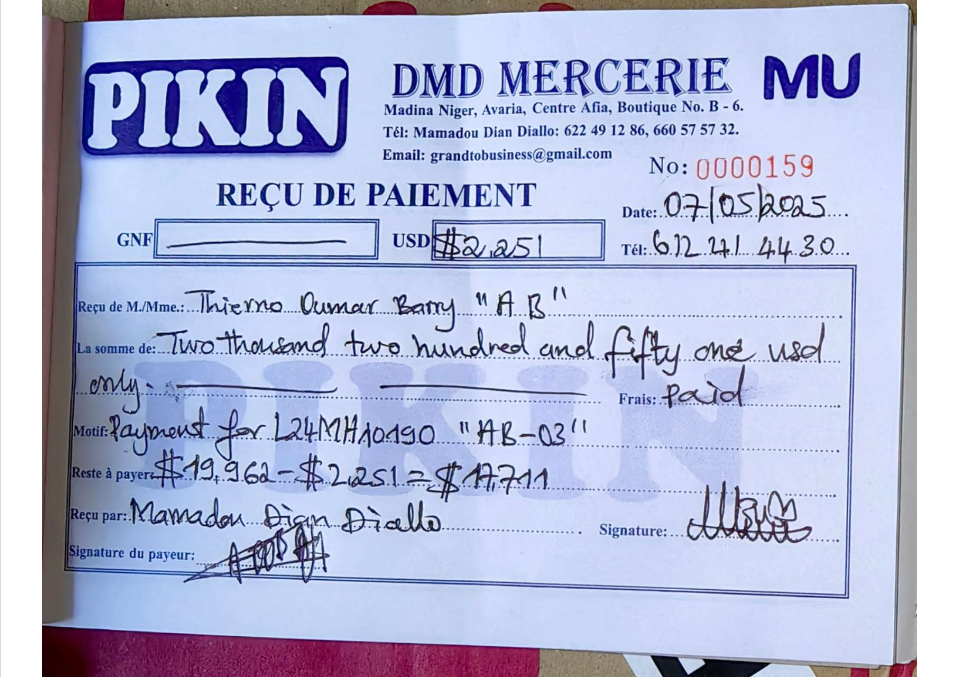 PIKIN
DMD MERCERIE MU
Madina Niger, Avaria, Centre Afia, Boutique No. B - 6.
Tél: Mamadou Dian Diallo: 622 49 12 86, 660 57 57 32.
Email: grandtobusiness@gmail.com
No: 0000159
REÇU DE PAIEMENT
Date: 07/05/2025
GNF USD $2,251
Tél: 612 41 44 30
Reçu de M./Mme.: Thierno Oumar Barry "AB"
La somme de: Two thousand two hundred and fifty one usd
only - Frais: Paid
Motif: Payment for L24MH10190 "AB-03"
Reste à payer: $19,962 - $2,251 = $17,711
Reçu par: Mamadou Dian Diallo Signature:
Signature du payeur:
PIKIN